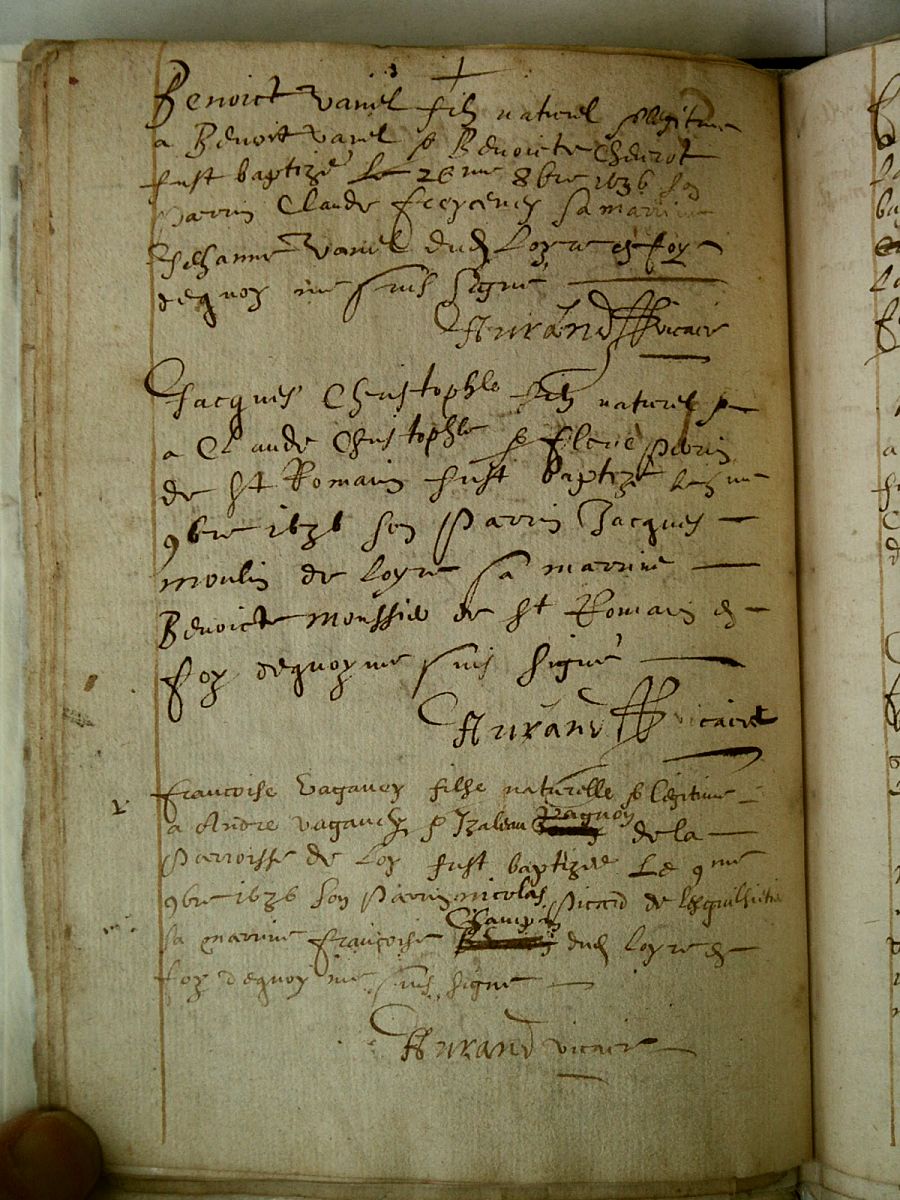 Benoict Vanel filz naturel & legitime
a Benoit Vanel & Benoicte
fust baptizé le 26me 8bre 1636 son
parrin Claude sa marrine
Jehanne Vanel dud Loyre en foy
dequoy me suis signé
Durand vicaire
Jacques Christophle filz naturel &
a Claude Christophle & Flerie Perrin
de St Romain fust baptizé le
9bre 1636 son parrin Jacques
moulin de Loyre sa marrine
Benoicte de St Romain en
foy dequoy me suis signé
Durand vicaire
Francoise Vaganey filhe naturelle & legitime
a Andre & de la
Parroisse de Loy fust baptizée le 9me
9bre 1636 son parrin nicolas Picard de
sa marrine françoise dud Loyre en
foy dequoy me suis signe
Durand vicaire